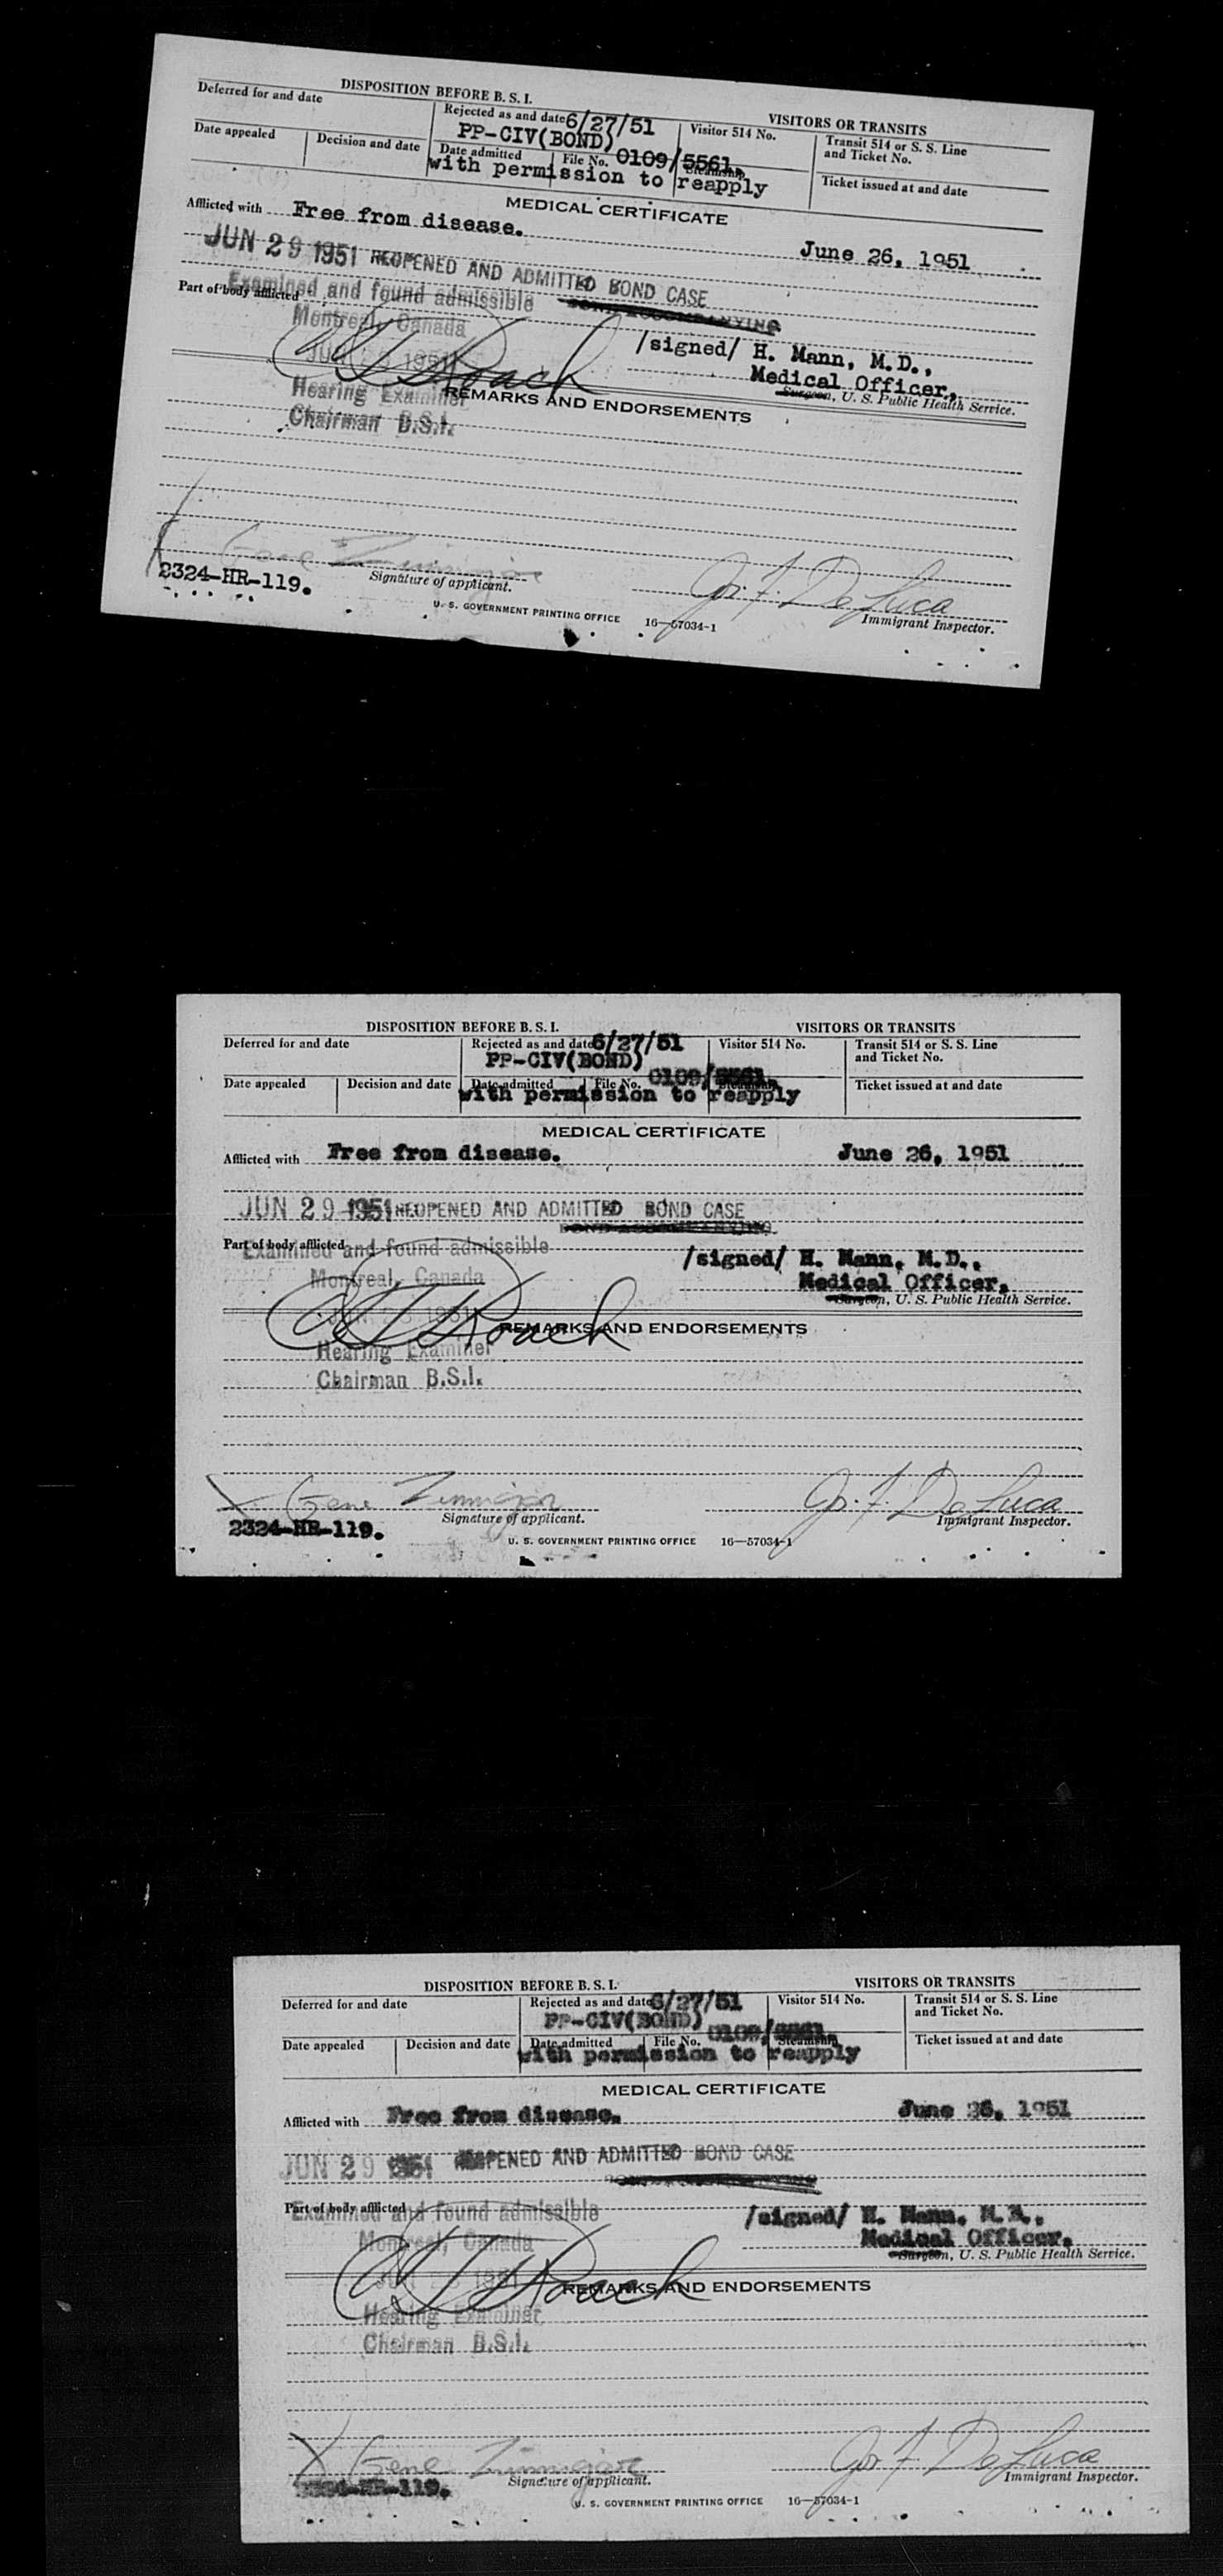 DISPOSITION BEFORE B. S. I.
VISITORS OR TRANSITS
Deferred for and date
Rejected as and date 6/27/51
PP-CIV(BOND)
Visitor 514 No.
Transit 514 or S. S. Line
and Ticket No.
Date appealed
Decision and date
Date admitted
File No. 0109/5561.
Steamship
Ticket issued at and date
with permission to reapply
MEDICAL CERTIFICATE
Afflicted with Free from disease.
June 26, 1951
JUN 29 1951 REOPENED AND ADMITTED BOND CASE
BOND ACCOMPANYING
Part of body afflicted
Examined and found admissible
Montreal, Canada
/signed/ H. Mann, M.D.,
Medical Officer,
Surgeon, U. S. Public Health Service.
Roach
REMARKS AND ENDORSEMENTS
Hearing Examiner
Chairman B.S.I.
Gene
Jos. F. De Luca
2324-HR-119.
Signature of applicant.
Immigrant Inspector.
U. S. GOVERNMENT PRINTING OFFICE 16—57034-1
DISPOSITION BEFORE B. S. I.
VISITORS OR TRANSITS
Deferred for and date
Rejected as and date 6/27/51
PP-CIV(BOND)
Visitor 514 No.
Transit 514 or S. S. Line
and Ticket No.
Date appealed
Decision and date
Date admitted
File No. 0109/5561.
Steamship
Ticket issued at and date
with permission to reapply
MEDICAL CERTIFICATE
Afflicted with Free from disease.
June 26, 1951
JUN 29 1951 REOPENED AND ADMITTED BOND CASE
BOND ACCOMPANYING
Part of body afflicted
Examined and found admissible
Montreal, Canada
/signed/ H. Mann, M.D.,
Medical Officer,
Surgeon, U. S. Public Health Service.
Roach
REMARKS AND ENDORSEMENTS
Hearing Examiner
Chairman B.S.I.
Gene
Jos. F. De Luca
2324-HR-119.
Signature of applicant.
Immigrant Inspector.
U. S. GOVERNMENT PRINTING OFFICE 16—57034-1
DISPOSITION BEFORE B. S. I.
VISITORS OR TRANSITS
Deferred for and date
Rejected as and date 6/27/51
PP-CIV(BOND)
Visitor 514 No.
Transit 514 or S. S. Line
and Ticket No.
Date appealed
Decision and date
Date admitted
File No. 0109/5561.
Steamship
Ticket issued at and date
with permission to reapply
MEDICAL CERTIFICATE
Afflicted with Free from disease.
June 26, 1951
JUN 29 1951 REOPENED AND ADMITTED BOND CASE
Part of body afflicted
Examined and found admissible
Montreal, Canada
/signed/ H. Mann, M.D.,
Medical Officer,
Surgeon, U. S. Public Health Service.
Roach
REMARKS AND ENDORSEMENTS
Hearing Examiner
Chairman B.S.I.
Gene
Jos. F. De Luca
2324-HR-119.
Signature of applicant.
Immigrant Inspector.
U. S. GOVERNMENT PRINTING OFFICE 16—57034-1